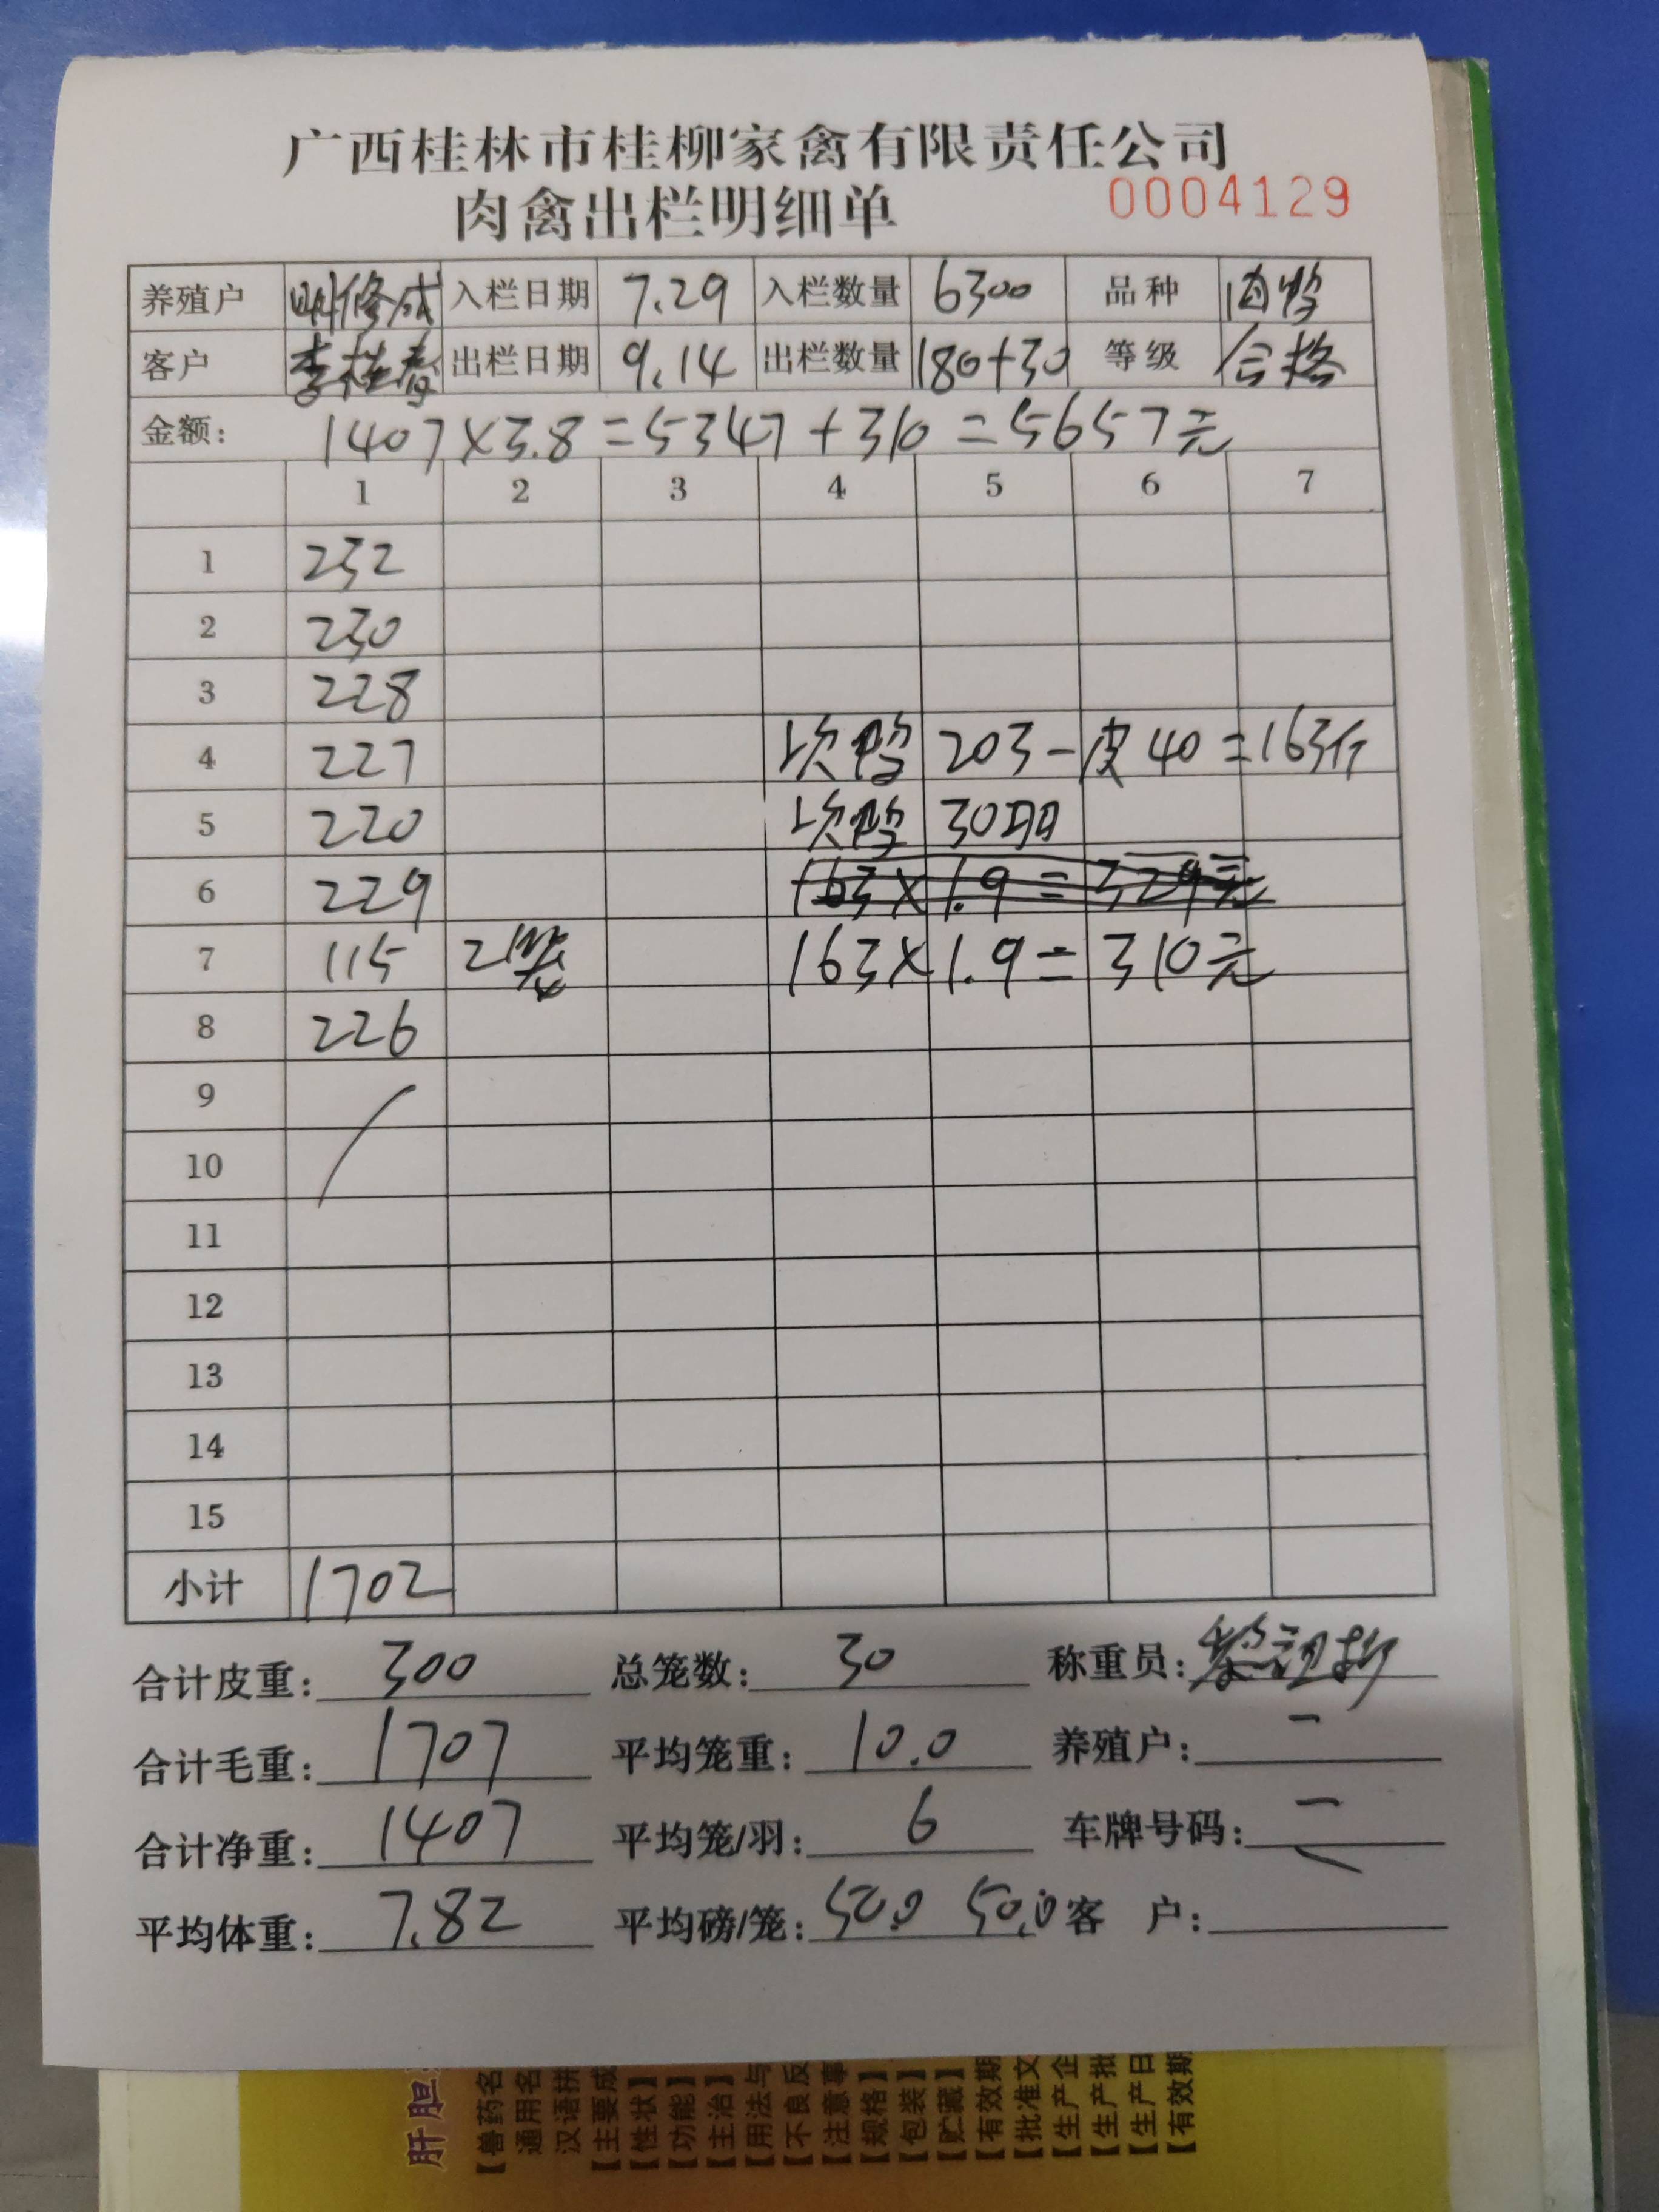 广西桂林市桂柳家禽有限责任公司
肉禽出栏明细单 0004129
养殖户 修成 入栏日期 7.29 入栏数量 6300 品种 肉鸭
客户 李桂春 出栏日期 9.14 出栏数量 180+30 等级 合格
金额: 1407×3.8=5347+310=5657元
1 2 3 4 5 6 7
1 232
2 230
3 228
4 227 次鸭 203-皮40=163斤
5 220 次鸭 30羽
6 229 163×1.9=329元
7 115 2笼 163×1.9=310元
8 226
9
10
11
12
13
14
15
小计 1702
合计皮重: 300 总笼数: 30 称重员:
合计毛重: 1707 平均笼重: 10.0 养殖户:
合计净重: 1407 平均笼/羽: 6 车牌号码:
平均体重: 7.82 平均磅/笼: 50.0 50.0 客 户:
肝胆
【兽药名
通用名
汉语拼
【主要成
【性状】
【功能】
【主治】
【用法与
【不良反
【注意事
【规格】
【包装】
【贮藏】
【有效期
【批准文
【生产企
【生产批
【生产日
【有效期